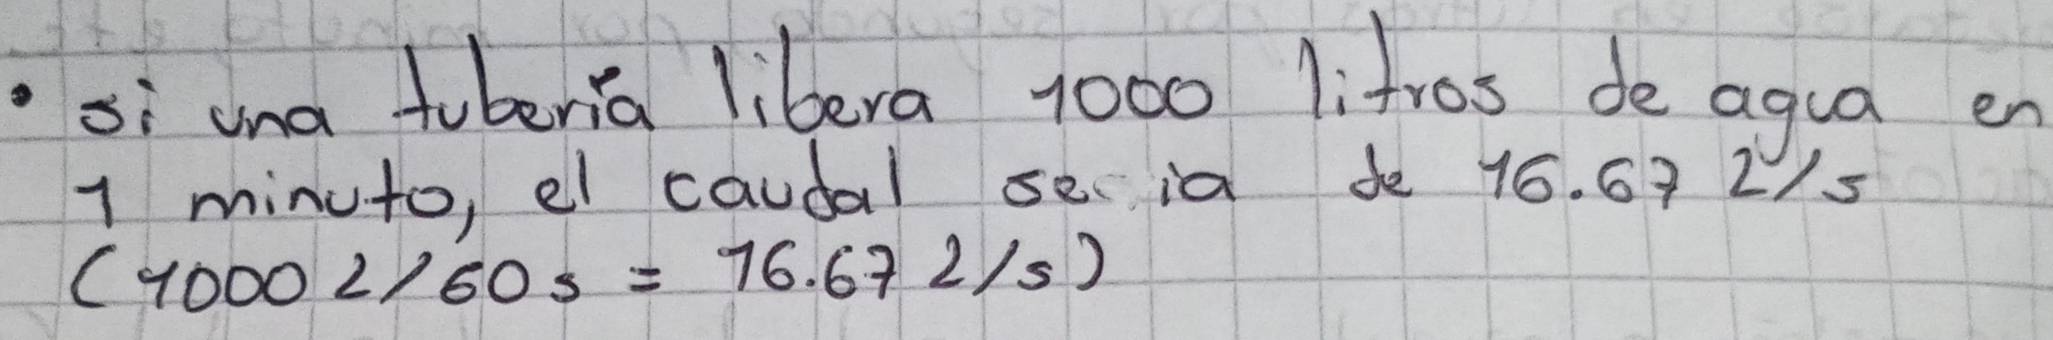 • si una tubería libera 1000 litros de agua en
1 minuto, el caudal seria de 16.67 L/s
(1000 L/60s = 16.67 L/s)